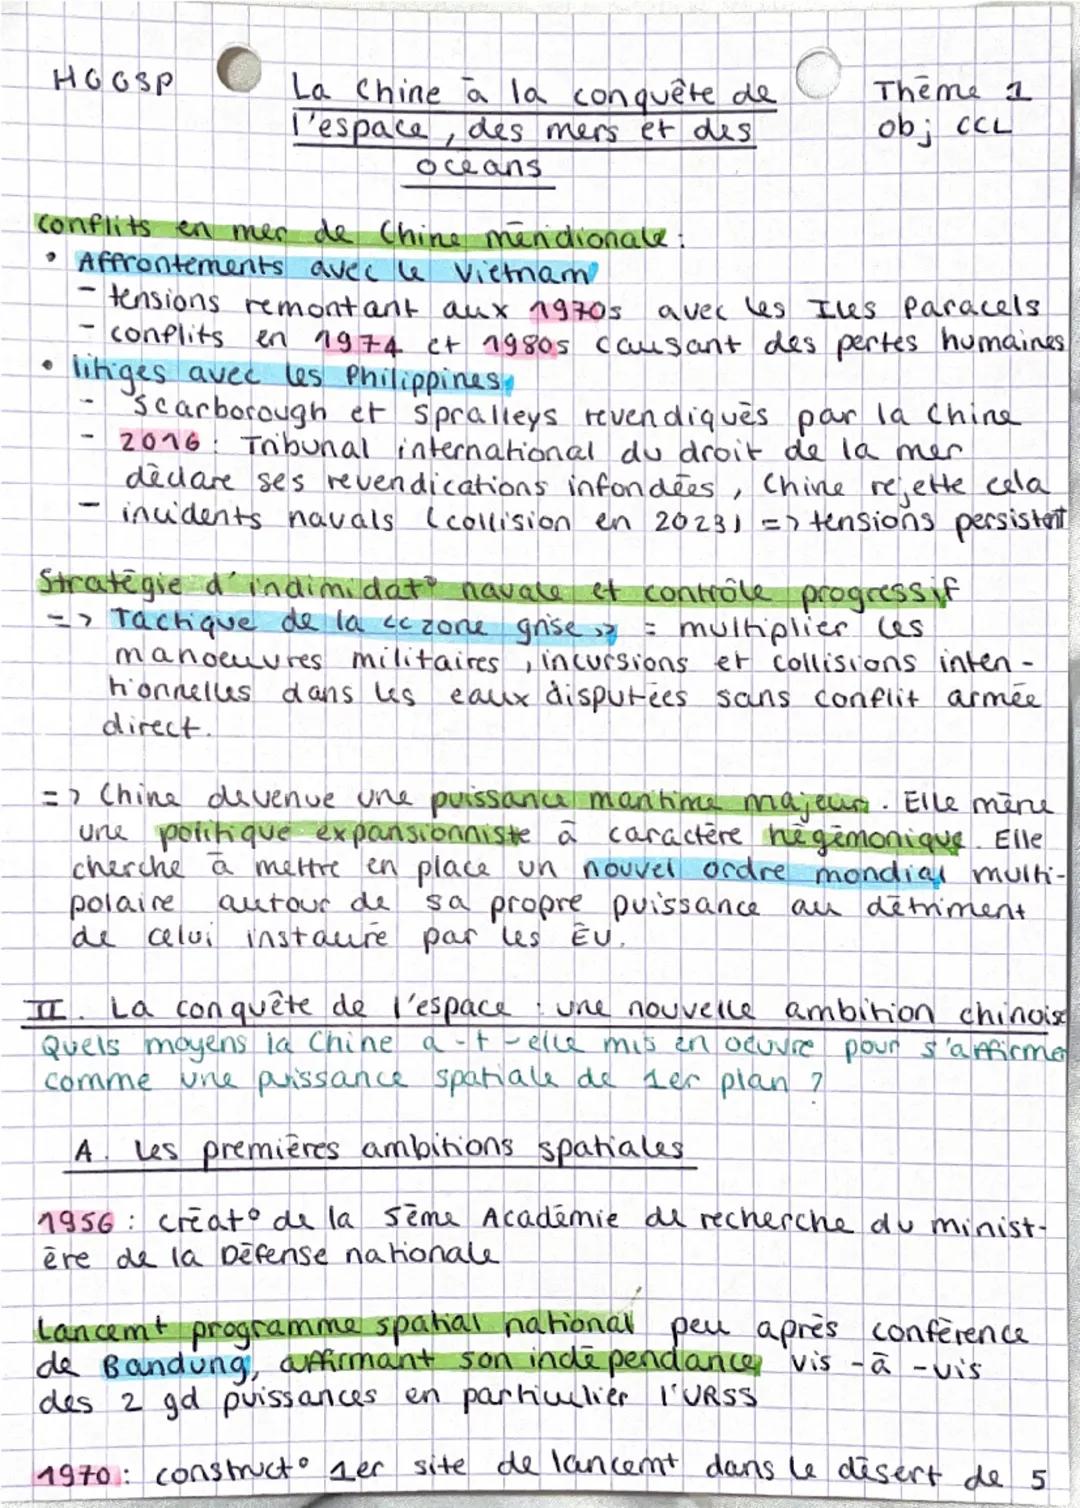 HGGSP
La Chine à la conquête de
l'espace, des mers et des
océans
Thème 1
obj CCL
Conflits en mer de Chine méridionale :
• Affrontements avec le Vietnam
- tensions remontant aux 1970s avec les Iles Paracels
- conflits en 1974 et 1980s causant des pertes humaines
• litiges avec les Philippines
- Scarborough et Spralleys revendiqués par la Chine
- 2016 : Tribunal international du droit de la mer
déclare ses revendications infondées, Chine rejette cela
- incidents navals (collision en 2023) => tensions persistent
Stratégie d'indimidat° navale et contrôle progressif
=> Tactique de la "zone grise" = multiplier les
manoeuvres militaires, incursions et collisions inten-
tionnelles dans les eaux disputées sans conflit armée
direct.
=> Chine devenue une puissance maritime majeur. Elle mène
une politique expansionniste à caractère hégémonique. Elle
cherche à mettre en place un nouvel ordre mondial multi-
polaire autour de sa propre puissance au détriment
de celui instauré par les ÉU.
II. La conquête de l'espace : une nouvelle ambition chinoise
Quels moyens la Chine a-t-elle mis en oeuvre pour s'affirmer
comme une puissance spatiale de 1er plan ?
A. Les premières ambitions spatiales
1956 : créat° de la 5ème Académie de recherche du minist-
ère de la Défense nationale
Lancemt programme spatial national peu après conférence
de Bandung, affirmant son indépendance vis-à-vis
des 2 gd puissances en particulier l'URSS
1970 : construct° 1er site de lancemt dans le désert de 5